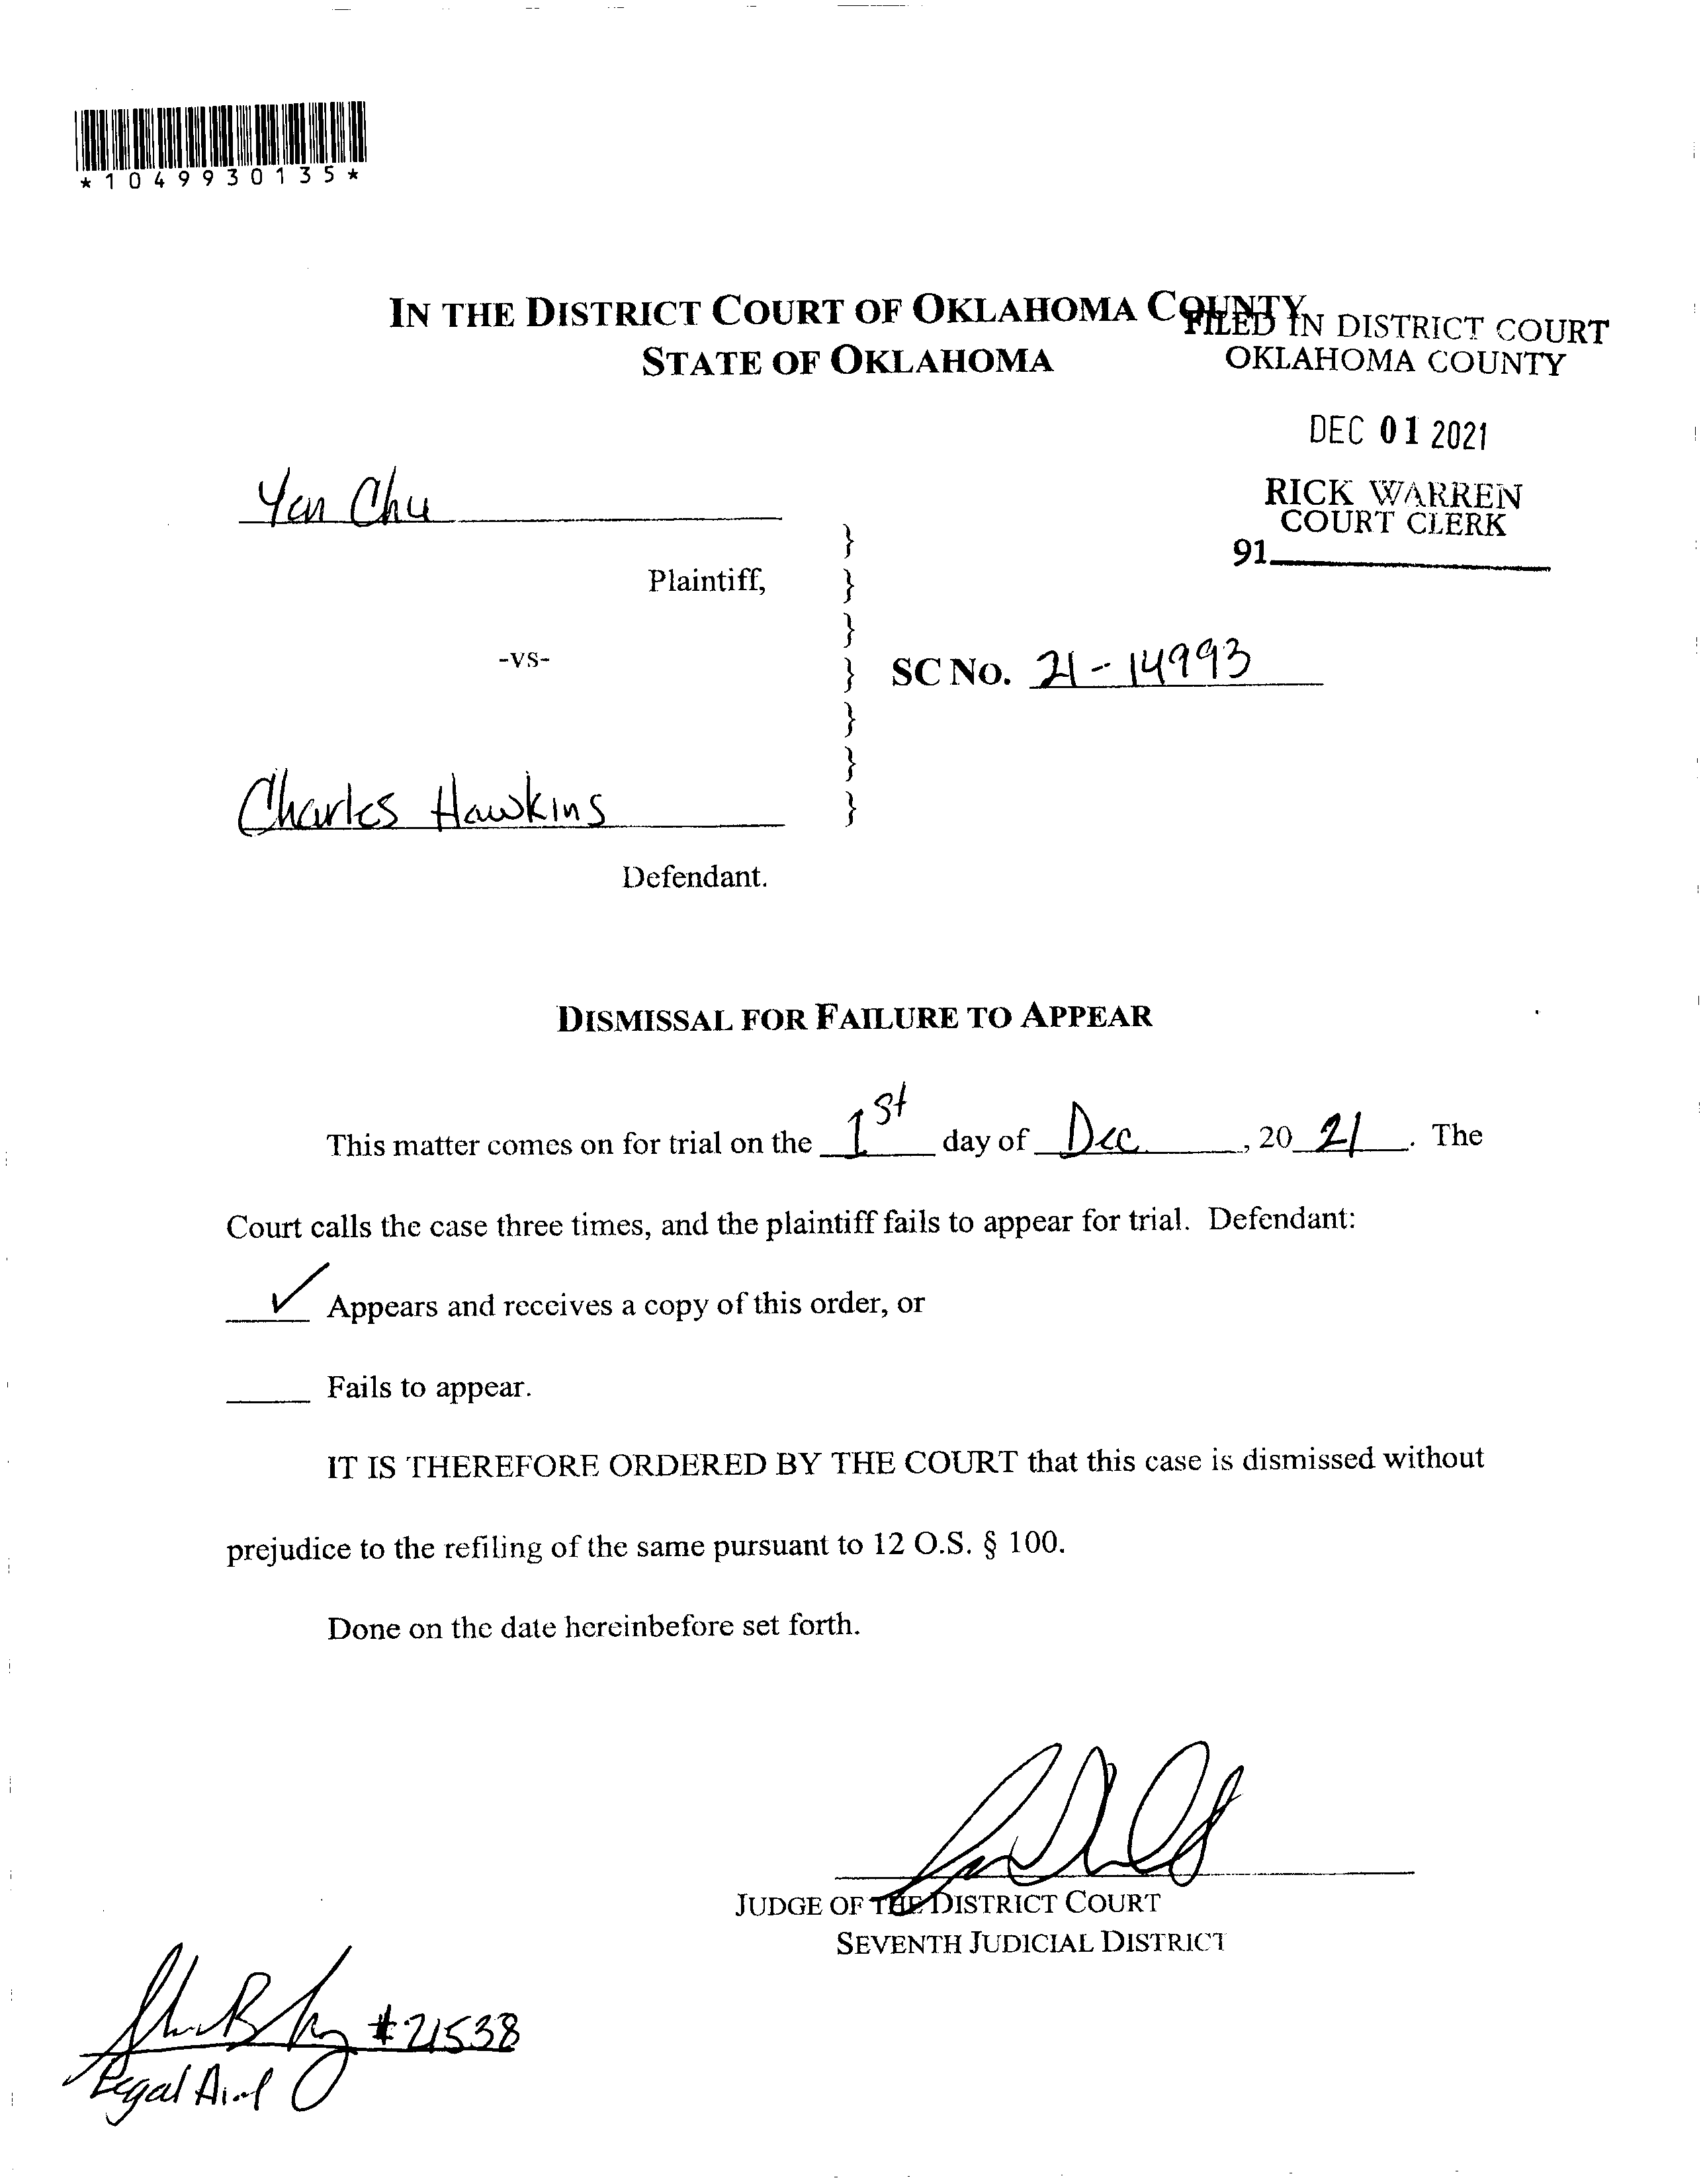 *1049930135*
IN THE DISTRICT COURT OF OKLAHOMA COUNTY
STATE OF OKLAHOMA
FILED IN DISTRICT COURT
OKLAHOMA COUNTY
DEC 01 2021
RICK WARREN
COURT CLERK
91
Yen Chu
Plaintiff,
-vs-
SC NO. 21-14993
Charles Hawkins
Defendant.
}
}
}
}
}
}
}
DISMISSAL FOR FAILURE TO APPEAR
This matter comes on for trial on the 1st day of Dec, 20 21. The
Court calls the case three times, and the plaintiff fails to appear for trial. Defendant:
✓ Appears and receives a copy of this order, or
Fails to appear.
IT IS THEREFORE ORDERED BY THE COURT that this case is dismissed without
prejudice to the refiling of the same pursuant to 12 O.S. § 100.
Done on the date hereinbefore set forth.
JUDGE OF THE DISTRICT COURT
SEVENTH JUDICIAL DISTRICT
#21538
Legal Aid